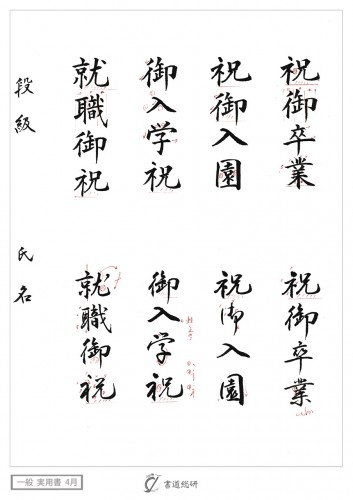 祝御卒業
祝御入園
御入学祝
就職御祝
段級
祝御卒業
祝御入園
御入学祝
就職御祝
氏名
一般 実用書 4月
書道総研